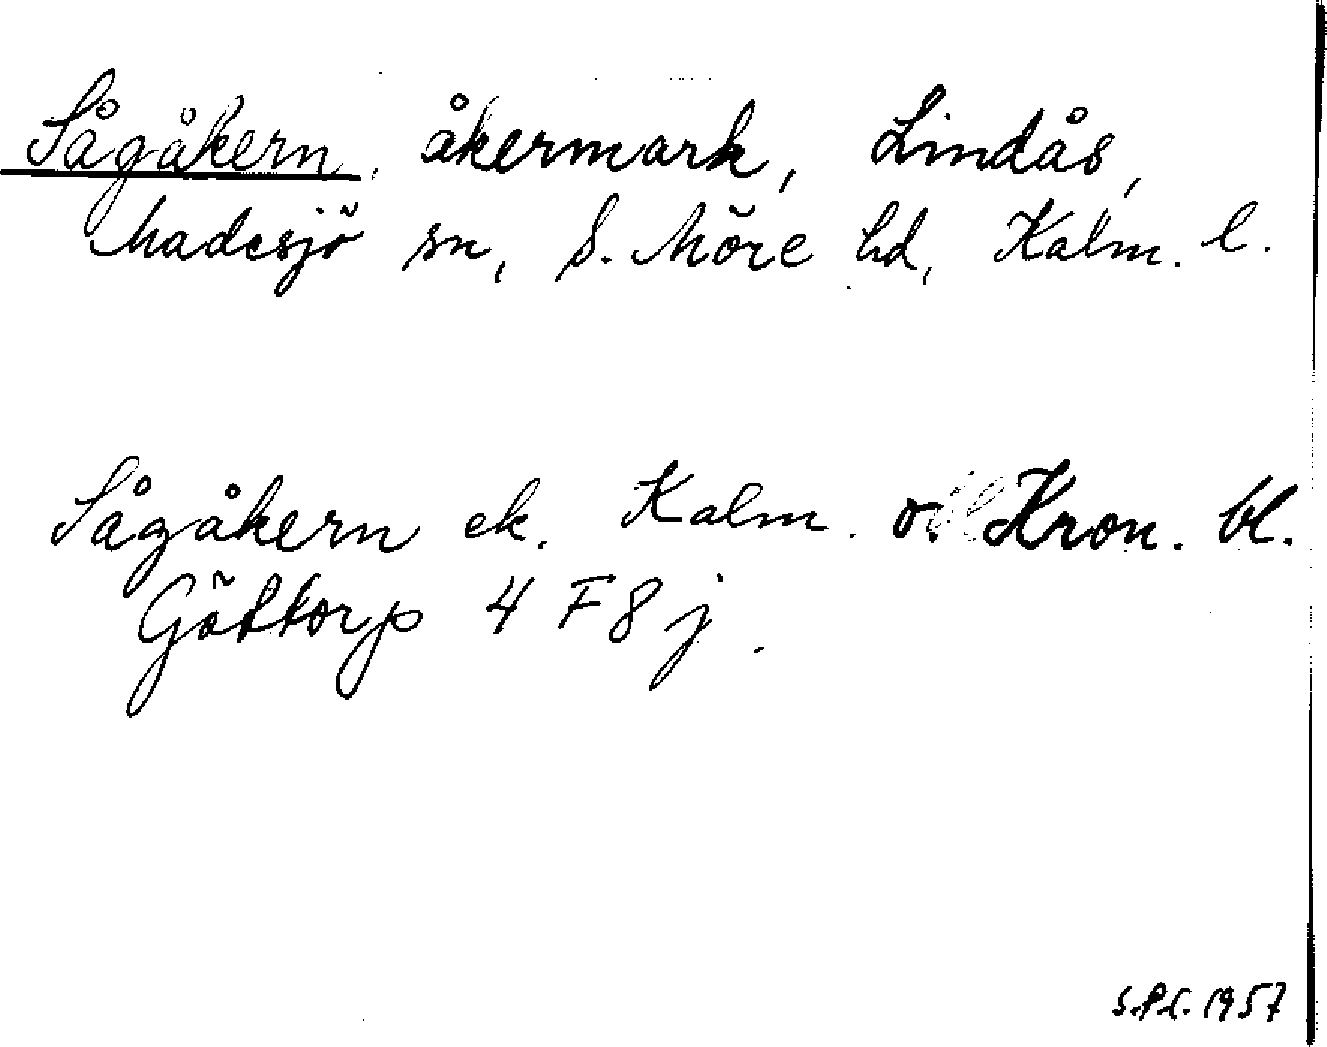 Sågåkern, åkermark, Lindås,
Madesjö sn, S. Möre hd, Kalm. l.
Sågåkern ek. Kalm. o. Kron. bl.
Göttorp 4 F 8 j.
1957